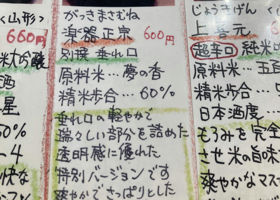 〈山形〉
660円
米大吟醸
酒
星
50%
-4
快な
がっきまさむね
楽器正宗 600円
別撰 垂れ口
原料米…夢の香
精米歩合…60%
垂れ口の軽やかで
瑞々しい部分を詰めた
透明感に優れた
特別バージョンです
爽やかでさっぱりとした
じょうきげん
上喜元
超辛口 純米
原料米…五
精米歩合
日本酒度
もろみを完
させ米の旨味
爽やかなマス